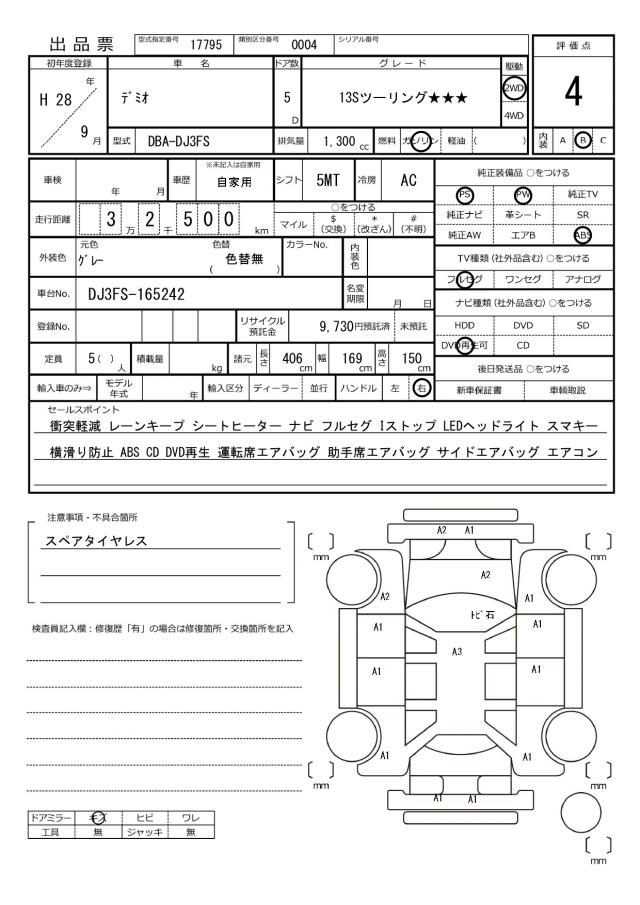 出品票 型式指定番号 17795 類別区分番号 0004 シリアル番号
評価点
4
初年度登録 車名 ドア数 グレード 駆動
H 28 年 / 9 月
デミオ 5 D 13Sツーリング★★★ 2WD
4WD
型式 DBA-DJ3FS 排気量 1,300 cc 燃料 ガソリン 軽油 ( )
内装 A B C
車検 年 月 車歴 ※未記入は自家用 自家用 シフト 5MT 冷房 AC
走行距離 3 万 2 千 5 0 0 km
○をつける
マイル $(交換) *(改ざん) #(不明)
外装色 元色 グレー 色替 ( 色替無 ) カラーNo. 内装色
車台No. DJ3FS-165242 名変期限 月 日
登録No. リサイクル預託金 9,730円預託済 未預託
定員 5( )人 積載量 kg 諸元 長さ 406 cm 幅 169 cm 高さ 150 cm
輸入車のみ⇒ モデル年式 年 輸入区分 ディーラー 並行 ハンドル 左 右
純正装備品 ○をつける
PS PW 純正TV
純正ナビ 革シート SR
純正AW エアB ABS
TV種類(社外品含む)○をつける
フルセグ ワンセグ アナログ
ナビ種類(社外品含む)○をつける
HDD DVD SD
DVD再生可 CD
後日発送品 ○をつける
新車保証書 車輌取説
セールスポイント
衝突軽減 レーンキープ シートヒーター ナビ フルセグ Iストップ LEDヘッドライト スマキー
横滑り防止 ABS CD DVD再生 運転席エアバッグ 助手席エアバッグ サイドエアバッグ エアコン
注意事項・不具合箇所
スペアタイヤレス
検査員記入欄：修復歴「有」の場合は修復箇所・交換箇所を記入
ドアミラー キズ ヒビ ワレ
工具 無 ジャッキ 無
A2 A1
mm mm
A2
A2 A1
トビ石
A1 A1
A3
A1 A1
A1 A1
mm mm
A1 A1
mm